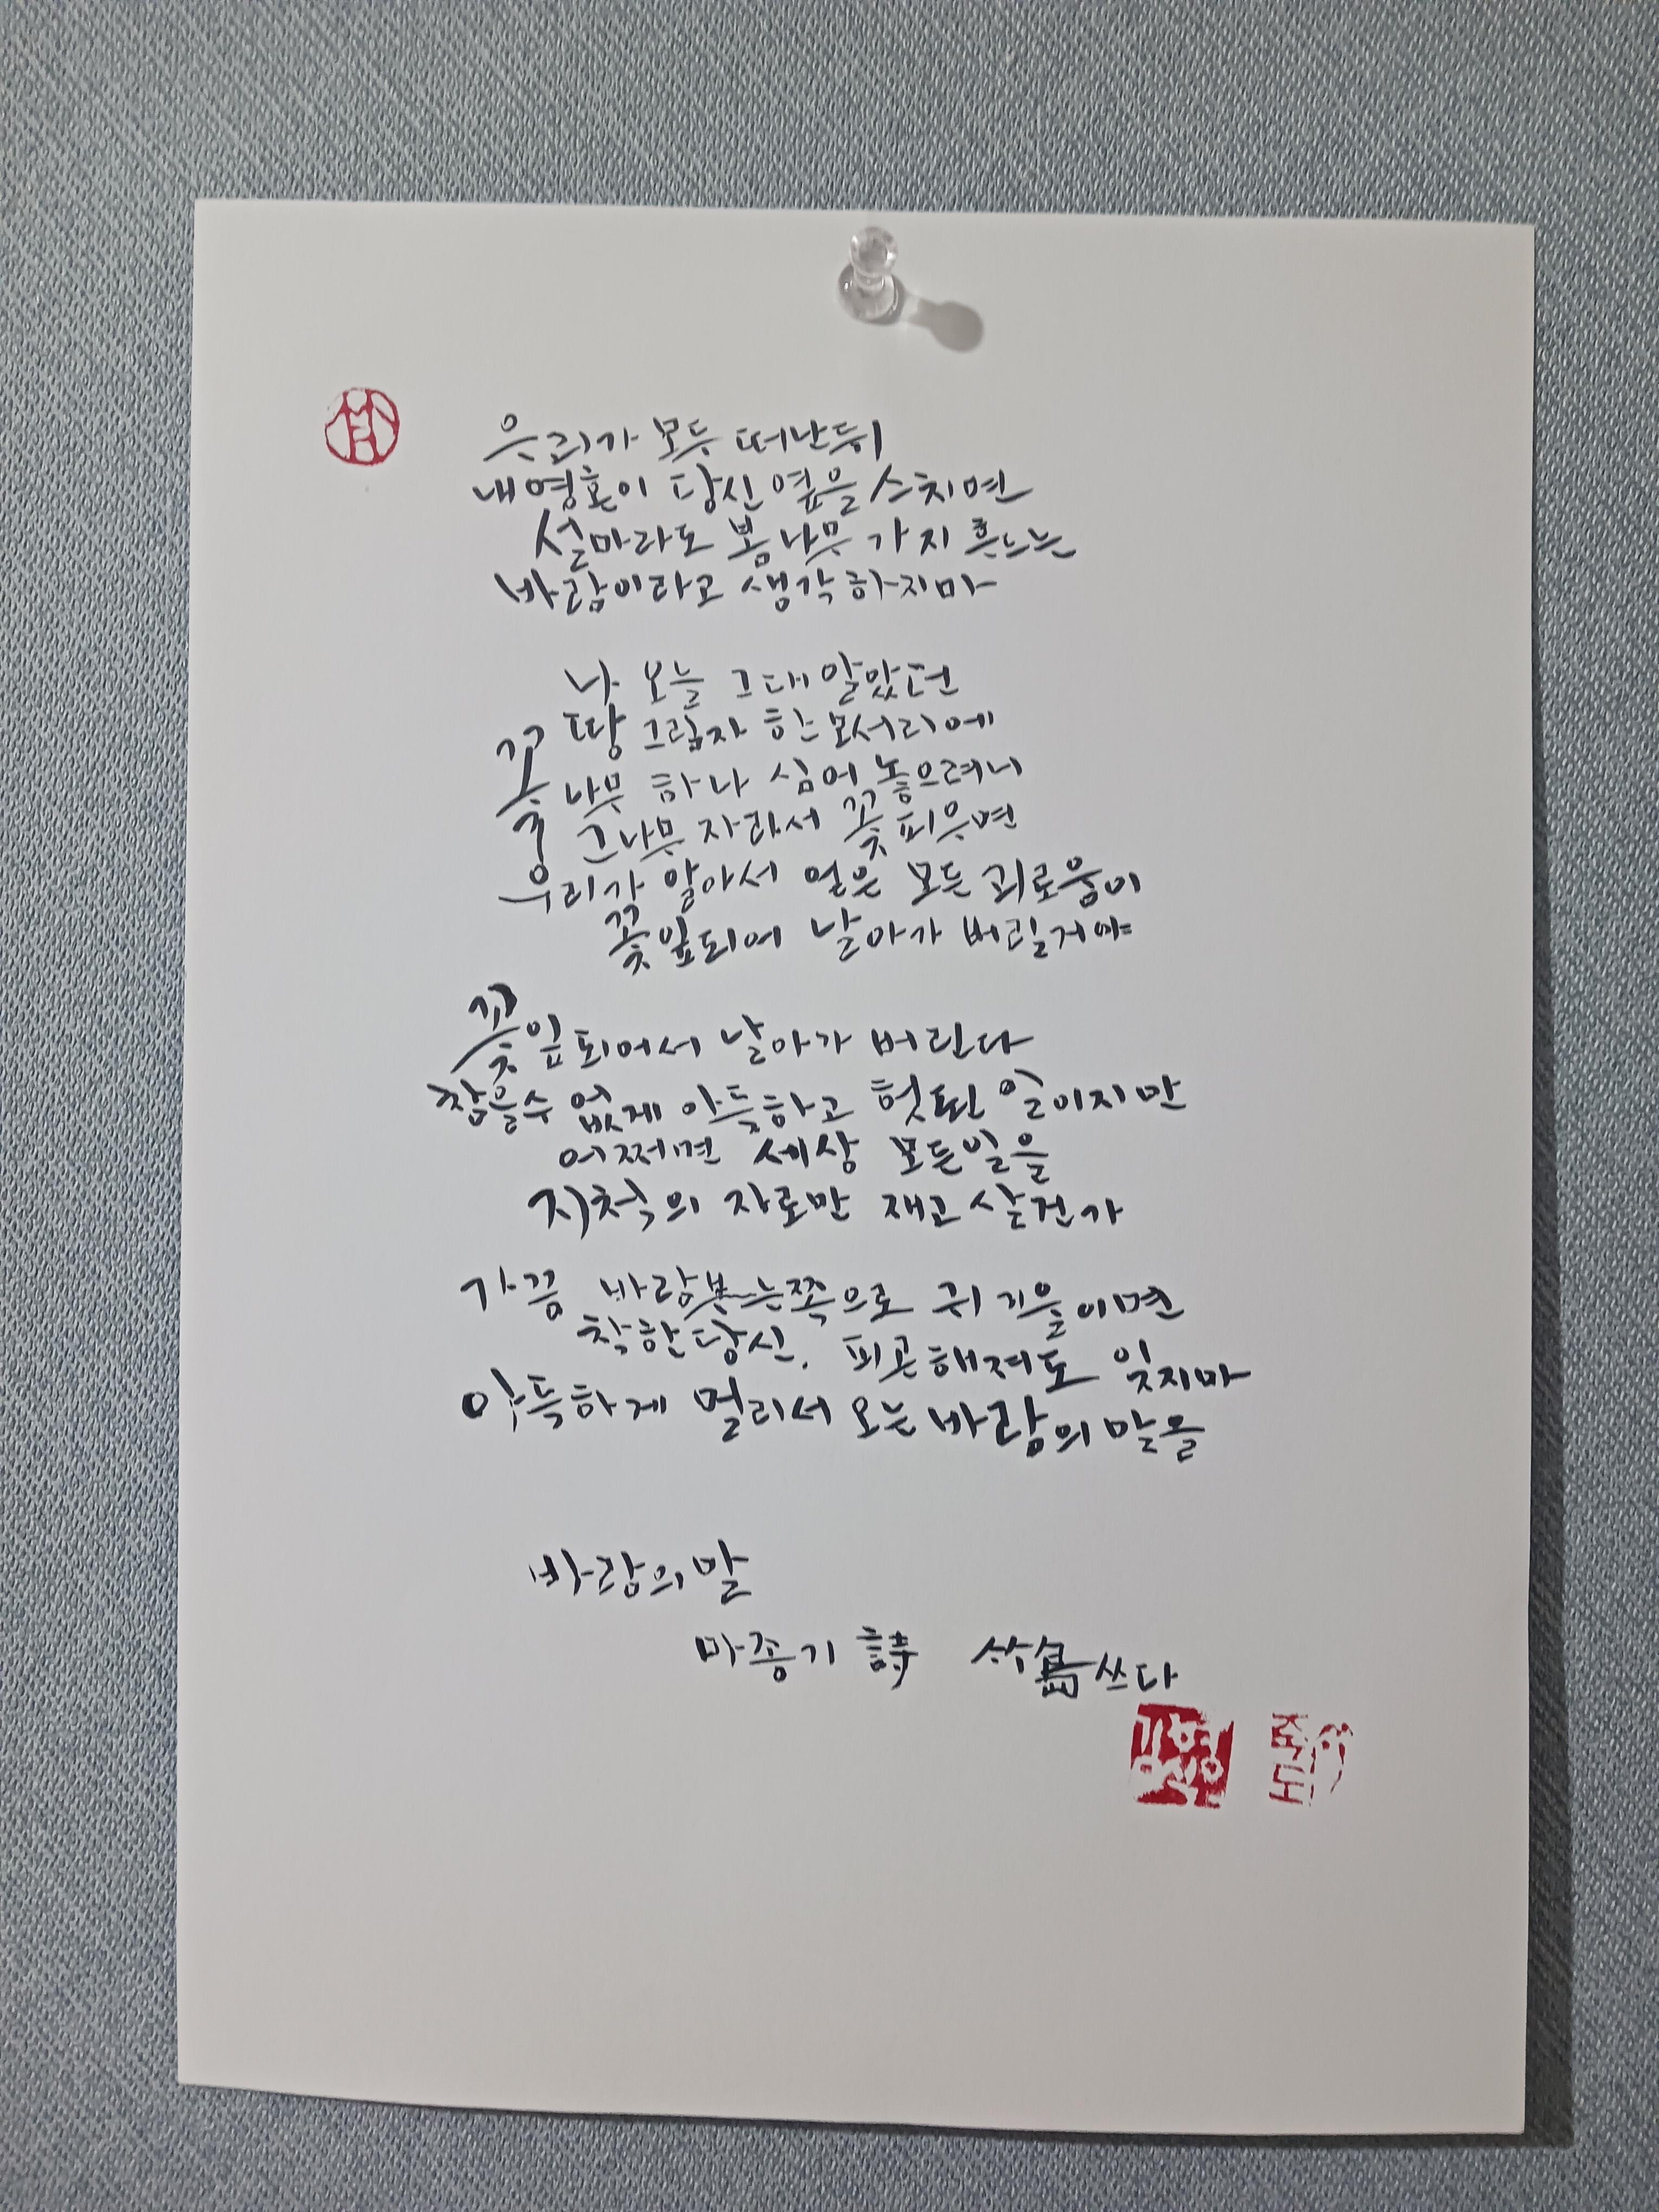 우리가 모두 떠난뒤
내영혼이 당신 옆을 스치면
설마라도 봄나무 가지 흔드는
바람이라고 생각하지마
나 오늘 그대 알았던
땅 그림자 한 모서리에
꽃나무 하나 심어 놓으려니
그나무 자라서 꽃피우면
우리가 알아서 얻은 모든 괴로움이
꽃잎되어 날아가 버릴거야
꽃잎되어서 날아가 버린다
참을수 없게 아득하고 헛된 일이지만
어쩌면 세상 모든일을
지척의 자로만 재고 살건가
가끔 바람부는쪽으로 귀 기울이면
착한당신, 피곤해져도 잊지마
아득하게 멀리서 오는바람의 말을
바람의말
마종기 詩 竹島 쓰다
죽도